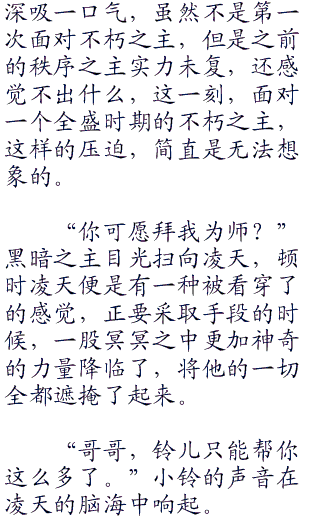 深吸一口气，虽然不是第一
次面对不朽之主，但是之前
的秩序之主实力未复，还感
觉不出什么，这一刻，面对
一个全盛时期的不朽之主，
这样的压迫，简直是无法想
象的。
“你可愿拜我为师？”
黑暗之主目光扫向凌天，顿
时凌天便是有一种被看穿了
的感觉，正要采取手段的时
候，一股冥冥之中更加神奇
的力量降临了，将他的一切
全都遮掩了起来。
“哥哥，铃儿只能帮你
这么多了。”小铃的声音在
凌天的脑海中响起。